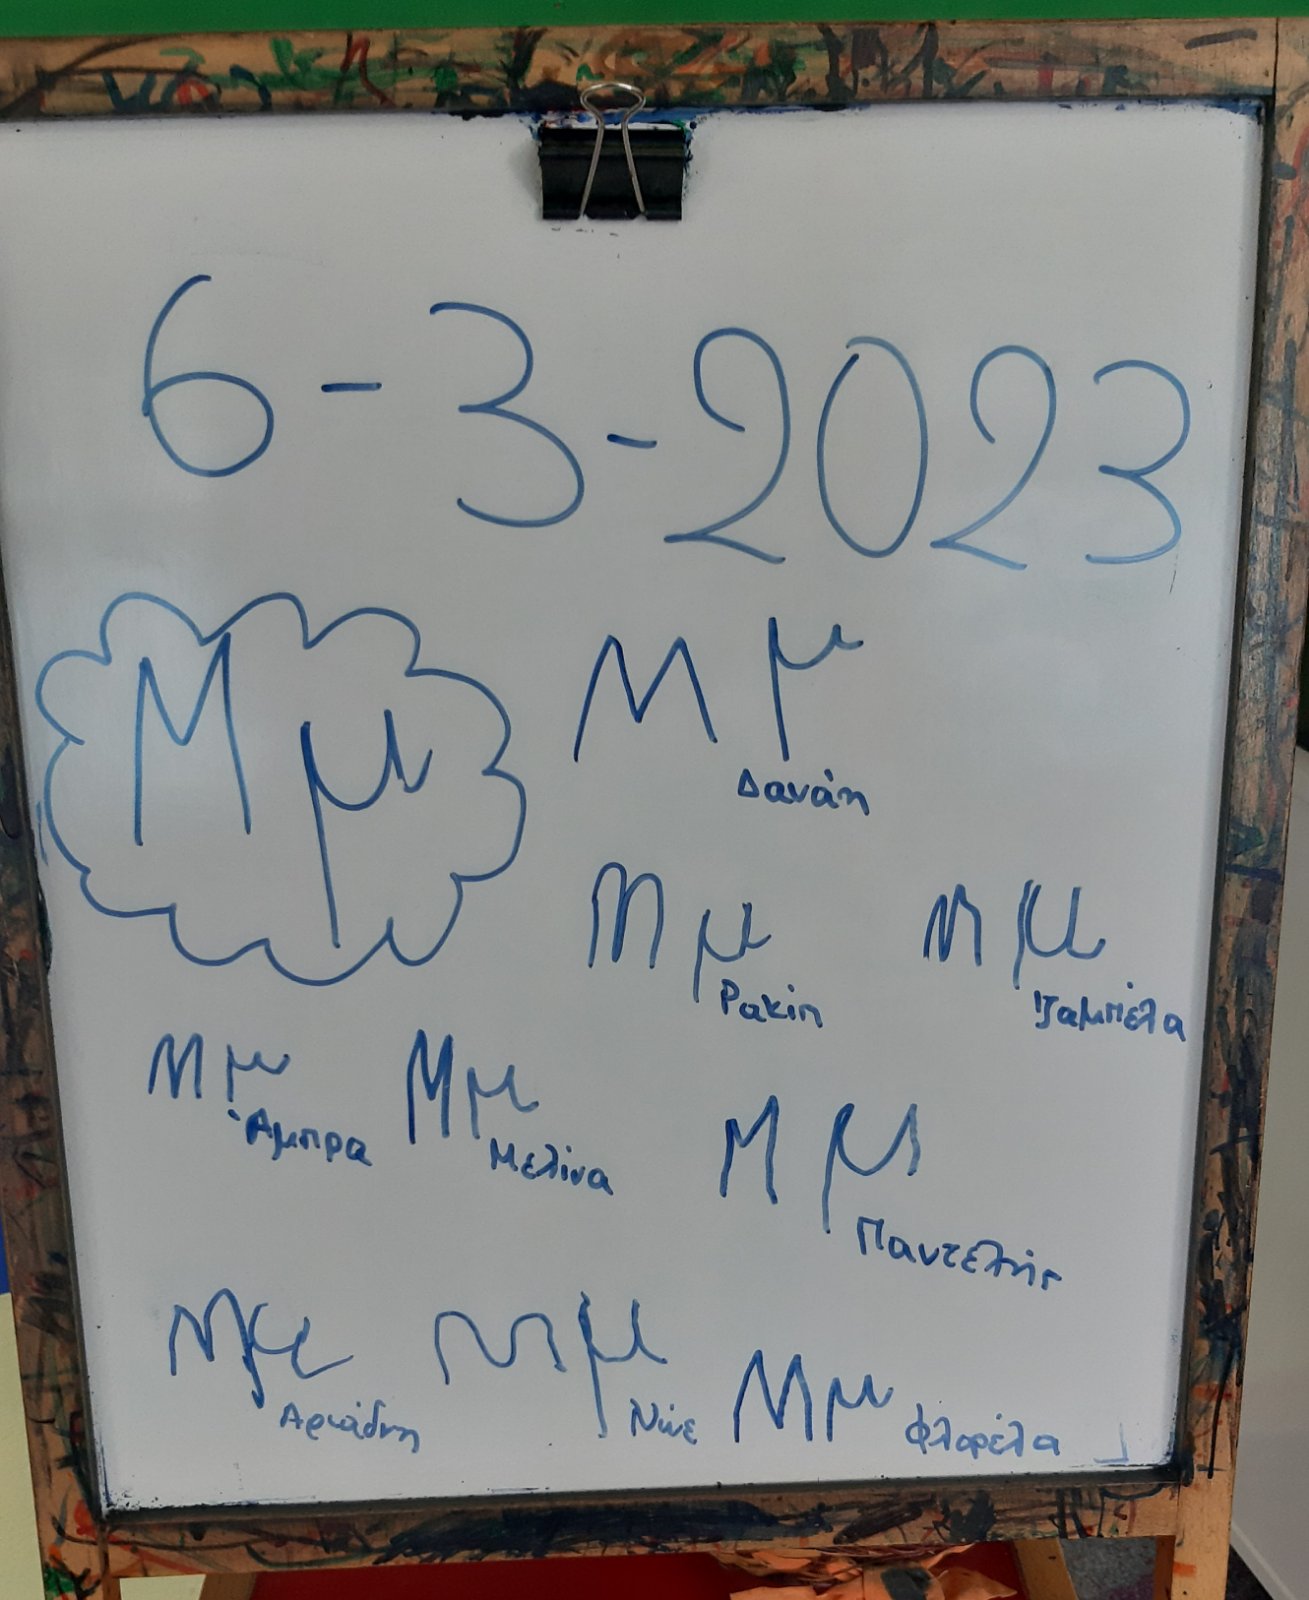 6-3-2023
Μμ
Μμ
Δανάη
Μμ Μμ
Ρακίη Ιζαμπέλα
Μμ Μμ
Άμπρα Μελίνα
Μμ
Παντελής
Μμ Μμ Μμ
Αριάδνη Φλορέλα